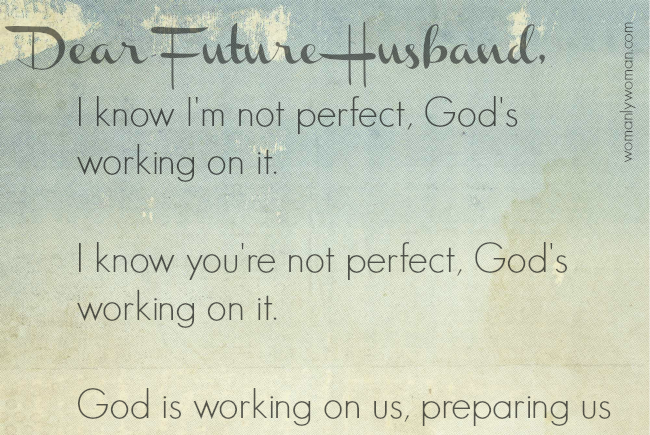 Dear Future Husband,
I know I'm not perfect, God's
working on it.
I know you're not perfect, God's
working on it.
God is working on us, preparing us
womanlywoman.com